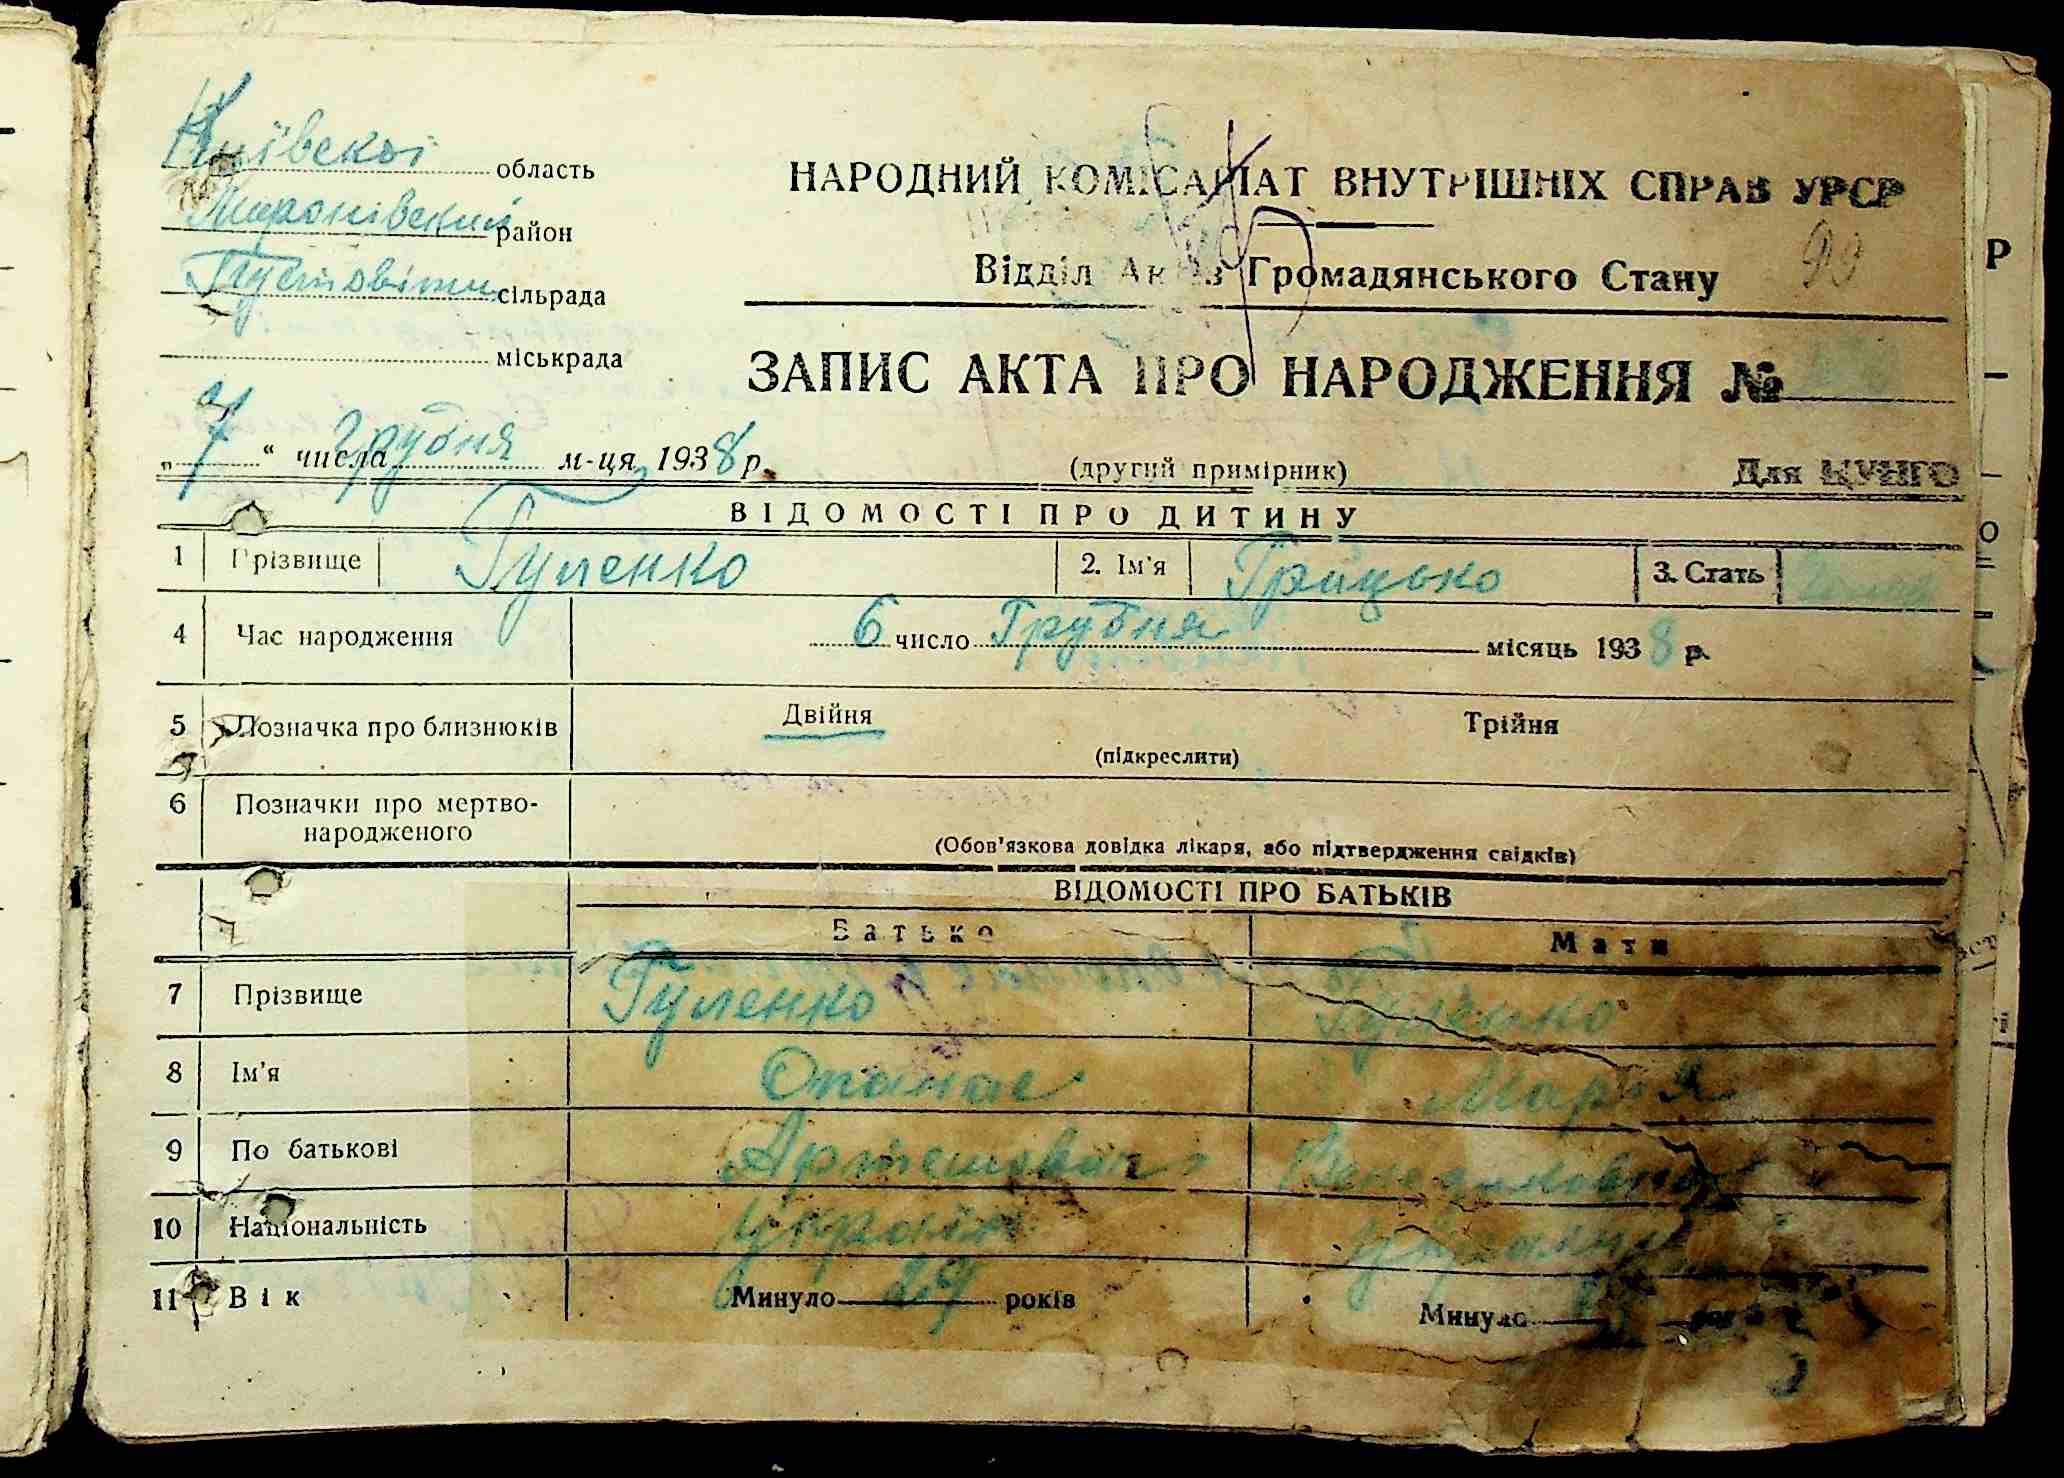 Київської область
Миронівський район
Пустовіти сільрада
міськрада
НАРОДНИЙ КОМІСАРІАТ ВНУТРІШНІХ СПРАВ УРСР
99
Відділ Актів Громадянського Стану
ЗАПИС АКТА ПРО НАРОДЖЕННЯ №
„7“ числа Грудня м-ця 1938 р.
(другий примірник)
Для ЦУНГО
ВІДОМОСТІ ПРО ДИТИНУ
1 Прізвище Гуленко 2. Ім'я Грицько 3. Стать
4 Час народження 6 число Грудня місяць 1938 р.
5 Позначка про близнюків Двійня Трійня
(підкреслити)
6 Позначки про мертво-
народженого
(Обов'язкова довідка лікаря, або підтвердження свідків)
ВІДОМОСТІ ПРО БАТЬКІВ
Батько Мати
7 Прізвище Гуленко Гуленко
8 Ім'я Опанас Марія
9 По батькові Артемович
10 Національність україн.
11 Вік Минуло 29 років Минуло